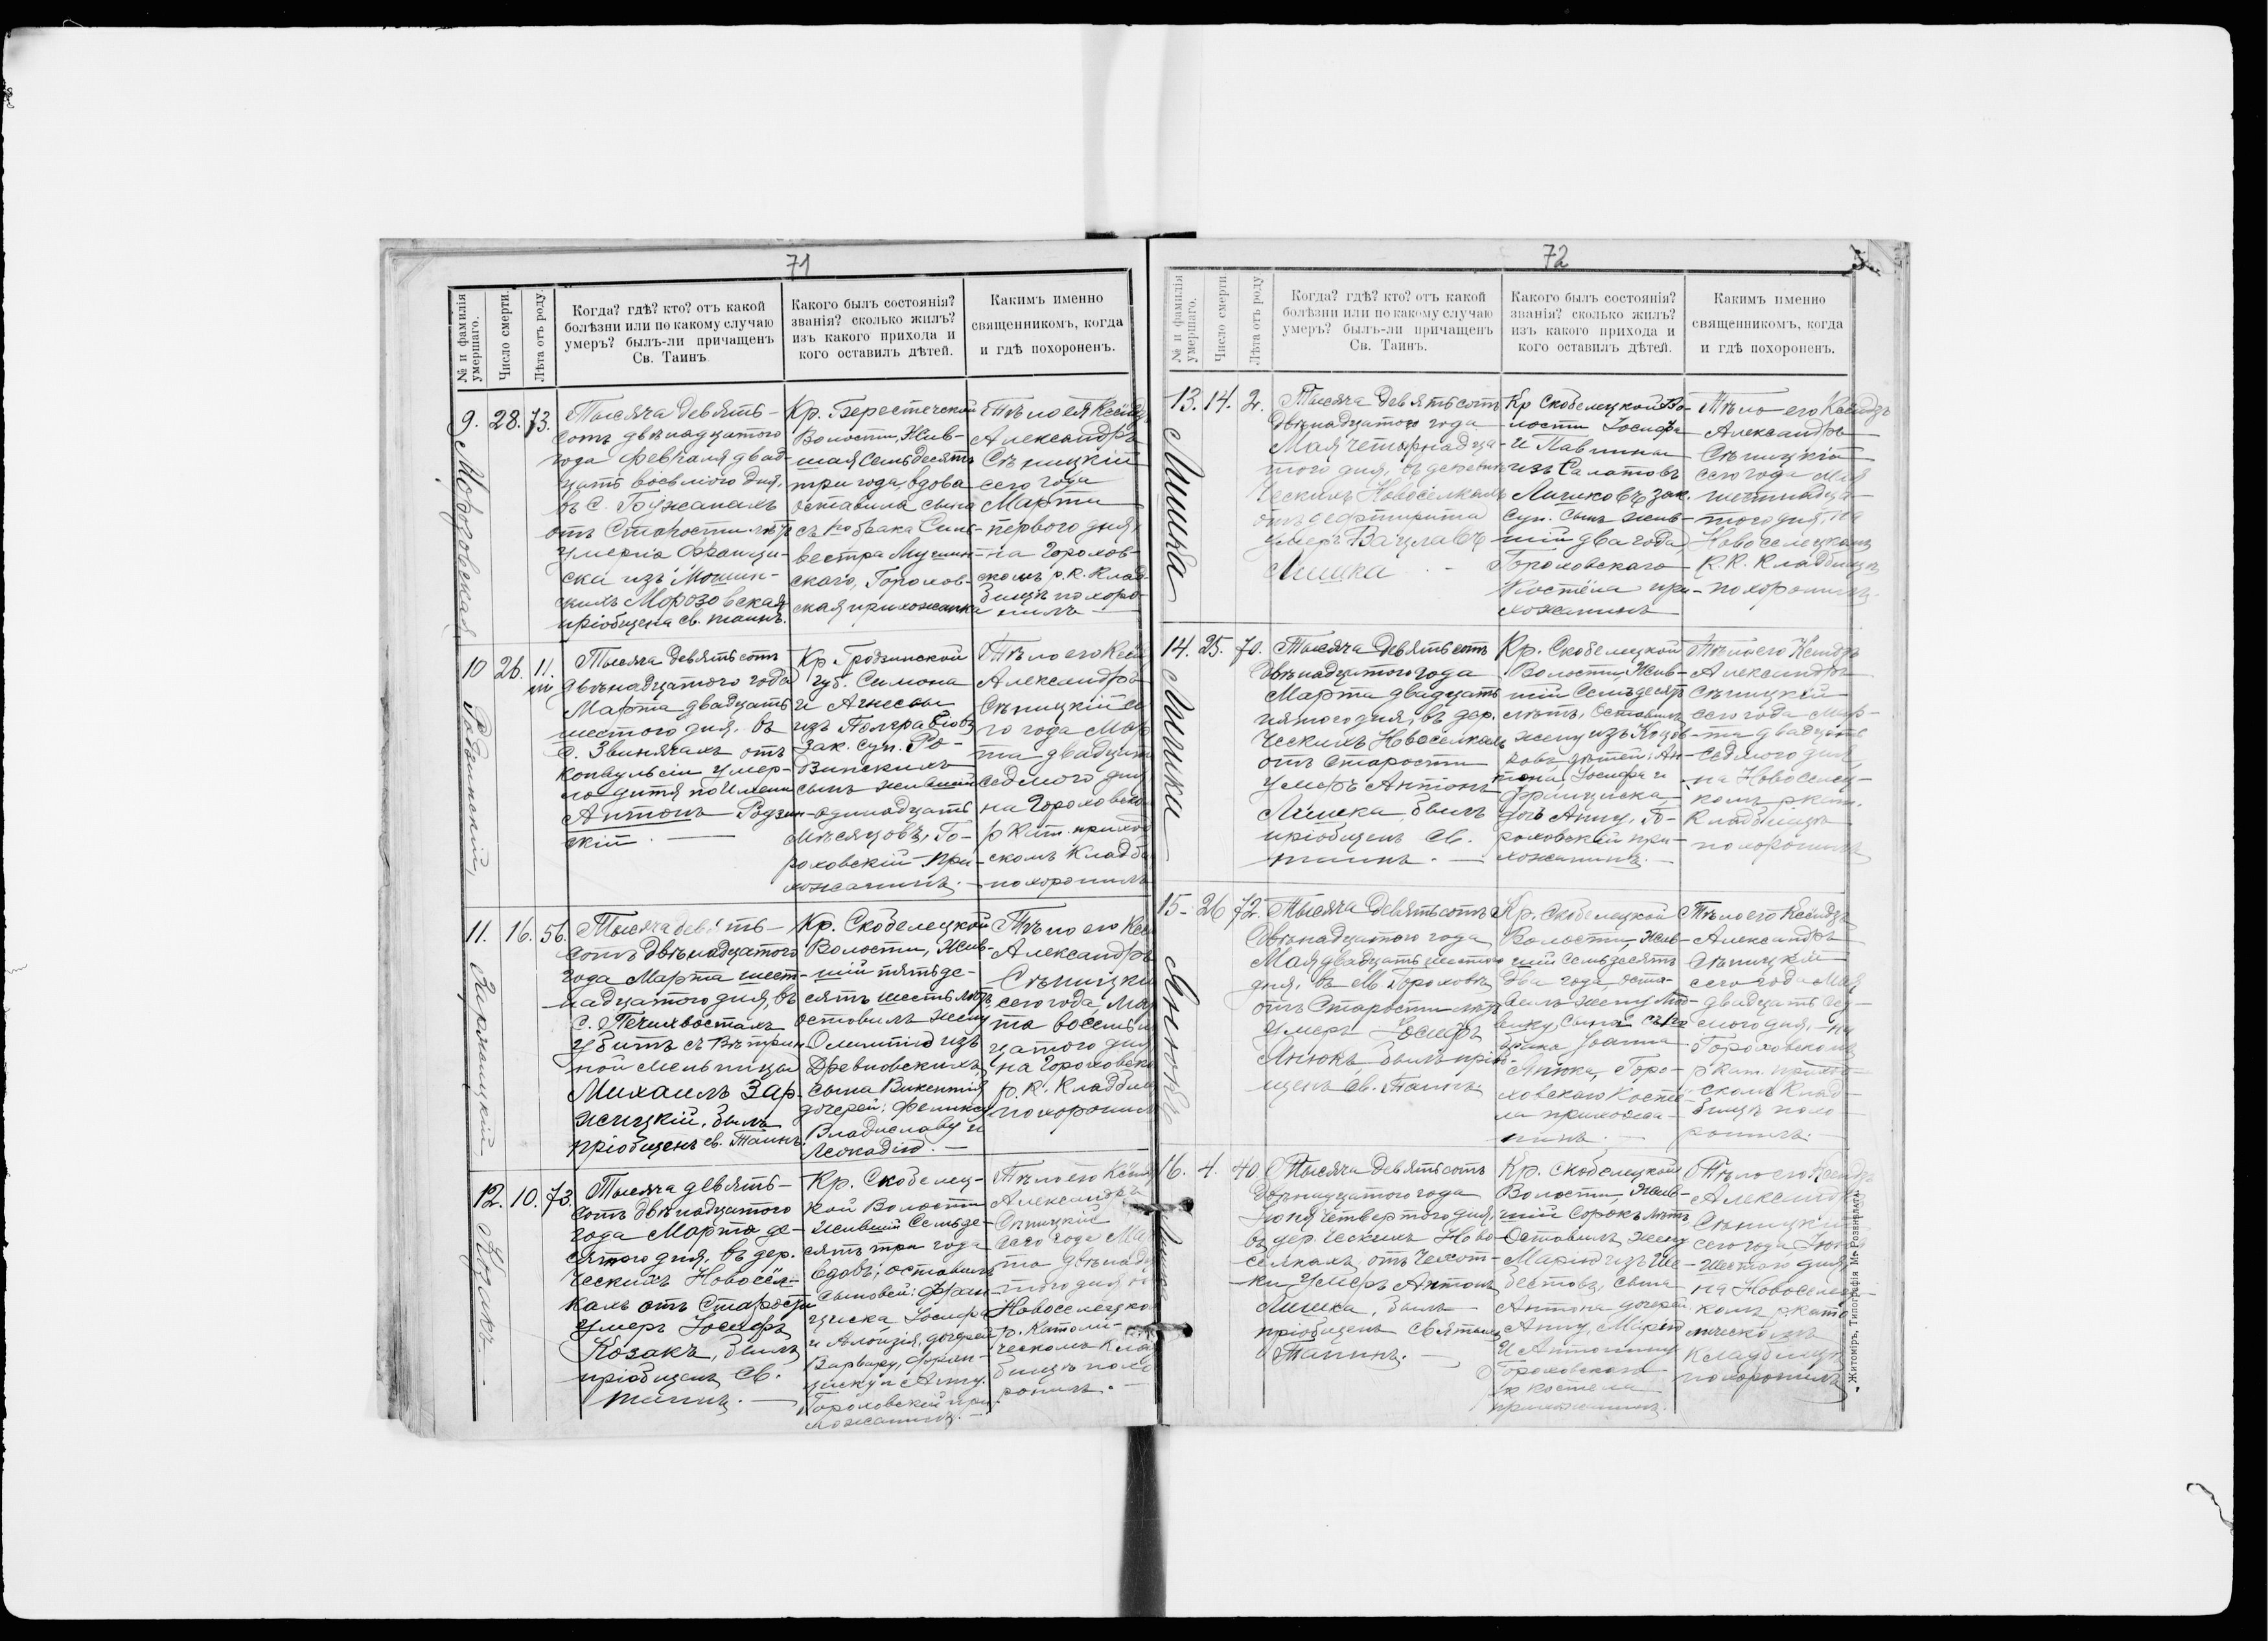 71
№ и фамилія умершаго.
Число смерти.
Лѣта отъ роду.
Когда? гдѣ? кто? отъ какой
болѣзни или по какому случаю
умеръ? былъ-ли причащенъ
Св. Таинъ.
Какого былъ состоянія?
званія? сколько жилъ?
изъ какого прихода и
кого оставилъ дѣтей.
Какимъ именно
священникомъ, когда
и гдѣ похороненъ.
9.
Морозовская
28.
73.
Тысяча девять-
сотъ двѣнадцатого
года февраля двад-
цать восьмого дня,
въ с. Бужанахъ
отъ старости лѣтъ
умерла Францис-
ска изъ Мошин-
скихъ Морозовская
пріобщена св. таинъ.
Кр. Берестечской
Волости, Жив-
шая семьдесятъ
три года, вдова
оставила сына
съ 1го брака Силь-
вестра
скаго, Горохов-
ская прихожанка
Тѣло ея Ксёндзъ
Александръ
Сѣницкій
сего года
Марта
перваго дня
на Горохов-
скомъ р.к. клад-
бищѣ похоро-
нилъ
10
26.
11. м
Тысяча девятьсотъ
двѣнадцатого года
Марта двадцать
шестого дня, въ
с. Звинячахъ отъ
конвульсіи умер-
ло дитя по имени
Антонъ Родзин-
скій
Кр. Гродзинской
губ. Симона
и Агнессы
изъ
зак. суп. Ро-
дзинскихъ
сынъ живший
одинадцать
мѣсяцовъ, Го-
роховскій при-
хожанинъ.
Тѣло его Ксён
Александръ
Сѣницкій се
го года Мар
та двадцать
седмого дня
на Гороховско
р кат. приход
скомъ кладби
похоронилъ
11.
Заржицкій
16.
56.
Тысяча девять-
сотъ двѣнадцатого
года Марта шест-
надцатого дня, въ
с. Печихвостахъ
убитъ съ вѣтрян-
ной мельницы
Михаилъ Зар-
жицкій, былъ
пріобщенъ св. Таинъ.
Кр. Скобелецкой
Волости, Жив-
шій пятьде-
сятъ шесть лѣтъ,
оставилъ жену
Олимпію изъ
Древновскихъ,
сына Викентія
дочерей: Феликсу
Владиславу и
Леокадію.
Тѣло его Ксен
Александръ
Сѣницкій
сего года, Мар
та восемьна
цатого дня
на Гороховско
р.к. кладбищ
похоронилъ
12.
Козакъ
10.
73.
Тысяча девять-
сотъ двѣнадцатого
года Марта де-
сятого дня, въ дер.
Ческихъ Новосёл-
кахъ отъ старости
умеръ Іосифъ
Козакъ, былъ
пріобщенъ Св.
таинъ.
Кр. Скобелец-
кой Волости
живший семьде-
сятъ три года
вдовъ; оставилъ
сыновей: Фран-
циска Іосифа
и Алойзія, дочерей
Варвару, Фран-
циску и Анну.
Гороховскій при-
хожанинъ.
Тѣло его Ксёндз
Александръ
Сѣницкій
сего года Мар
та двѣнадц
того дня на
Новоселецко
р. Католи-
ческомъ клад
бищѣ похо
ронилъ.
72
№ и фамилія умершаго.
Число смерти
Лѣта отъ роду
Когда? гдѣ? кто? отъ какой
болѣзни или по какому случаю
умеръ? былъ-ли причащенъ
Св. Таинъ.
Какого былъ состоянія?
званія? сколько жилъ?
изъ какого прихода и
кого оставилъ дѣтей.
Какимъ именно
священникомъ, когда
и гдѣ похороненъ.
13.
Лишка
14.
2.
Тысяча девятьсотъ
двѣнадцатого года
Мая четырнадца-
того дня, въ деревнѣ
Ческихъ Новосёлкахъ
отъ дефтирита
умеръ Вацлавъ
Лишка
Кр Скобелецкой Во-
лости Іосифа
и Павлины
изъ Салатовъ
Лишковъ зак.
суп. сынъ жив-
шій два года
Гороховскаго
Костёла при-
хожанинъ
Тѣло его Ксёндзъ
Александръ
Сѣницкій
сего года Мая
шестнадца-
того дня, на
Новоселецкомъ
р.к. кладбищѣ
похоронилъ.
14.
Лишка
25.
70.
Тысяча девятьсотъ
двѣнадцатого года
Марта двадцать
пятого дня, въ дер.
Ческихъ Новоселкахъ
отъ старости
умеръ Антонъ
Лишка, былъ
пріобщенъ Св.
таинъ.
Кр. Скобелецкой
Волости, Жив-
шій семьдесятъ
лѣтъ, Оставилъ
жену изъ Коза-
ковъ дѣтей: Ан-
тона, Іосифа и
Франциска,
дочь Анну, Го-
роховскій при-
хожанинъ.
Тѣло его Ксендзъ
Александръ
Сѣницкій
сего года Мар-
та двадцать
седмого дня
на Новоселец-
комъ р кат.
Кладбищѣ
похоронилъ
15.
Янюкъ
26
72.
Тысяча девятьсотъ
двѣнадцатого года
Мая двадцать шестого
дня, въ М Гороховѣ
отъ старости лѣтъ
умеръ Іосифъ
Янюкъ, былъ пріоб-
щенъ Св. Таинъ.
Кр. Скобелецкой
Волости, Жив-
шій семьдесятъ
два года, оста-
вилъ жену
сына съ 1го
брака Іоанна
Янюка, Горо-
ховскаго Костё-
ла прихожа-
нинъ.
Тѣло его Ксёндзъ
Александръ
Сѣницкій
сего года Мая
двадцать сед-
смого дня, на
Гороховскомъ
р кат. приход-
скомъ клад-
бищѣ похо-
ронилъ.
16.
Лишка
4.
40
Тысяча девятьсотъ
двѣнадцатого года
Іюня четвертого дня,
въ дер. Ческихъ Ново-
сёлкахъ, отъ Чехот-
ки умеръ Антонъ
Лишка, былъ
пріобщенъ святыхъ
Таинъ.
Кр. Скобелецкой
Волости, Жив-
шій сорокъ лѣтъ
Оставилъ жену
Марію изъ Ше-
бестовъ, сына
Антона дочерей
Анну, Марію
и Антонину
Гороховскаго
р к костела
прихожанинъ.
Тѣло его Ксендзъ
Александръ
Сѣницкій
сего года Іюня
шестого дня
на Новоселец-
комъ р като
лическомъ
кладбищѣ
похоронилъ
Житоміръ, Типографія М.